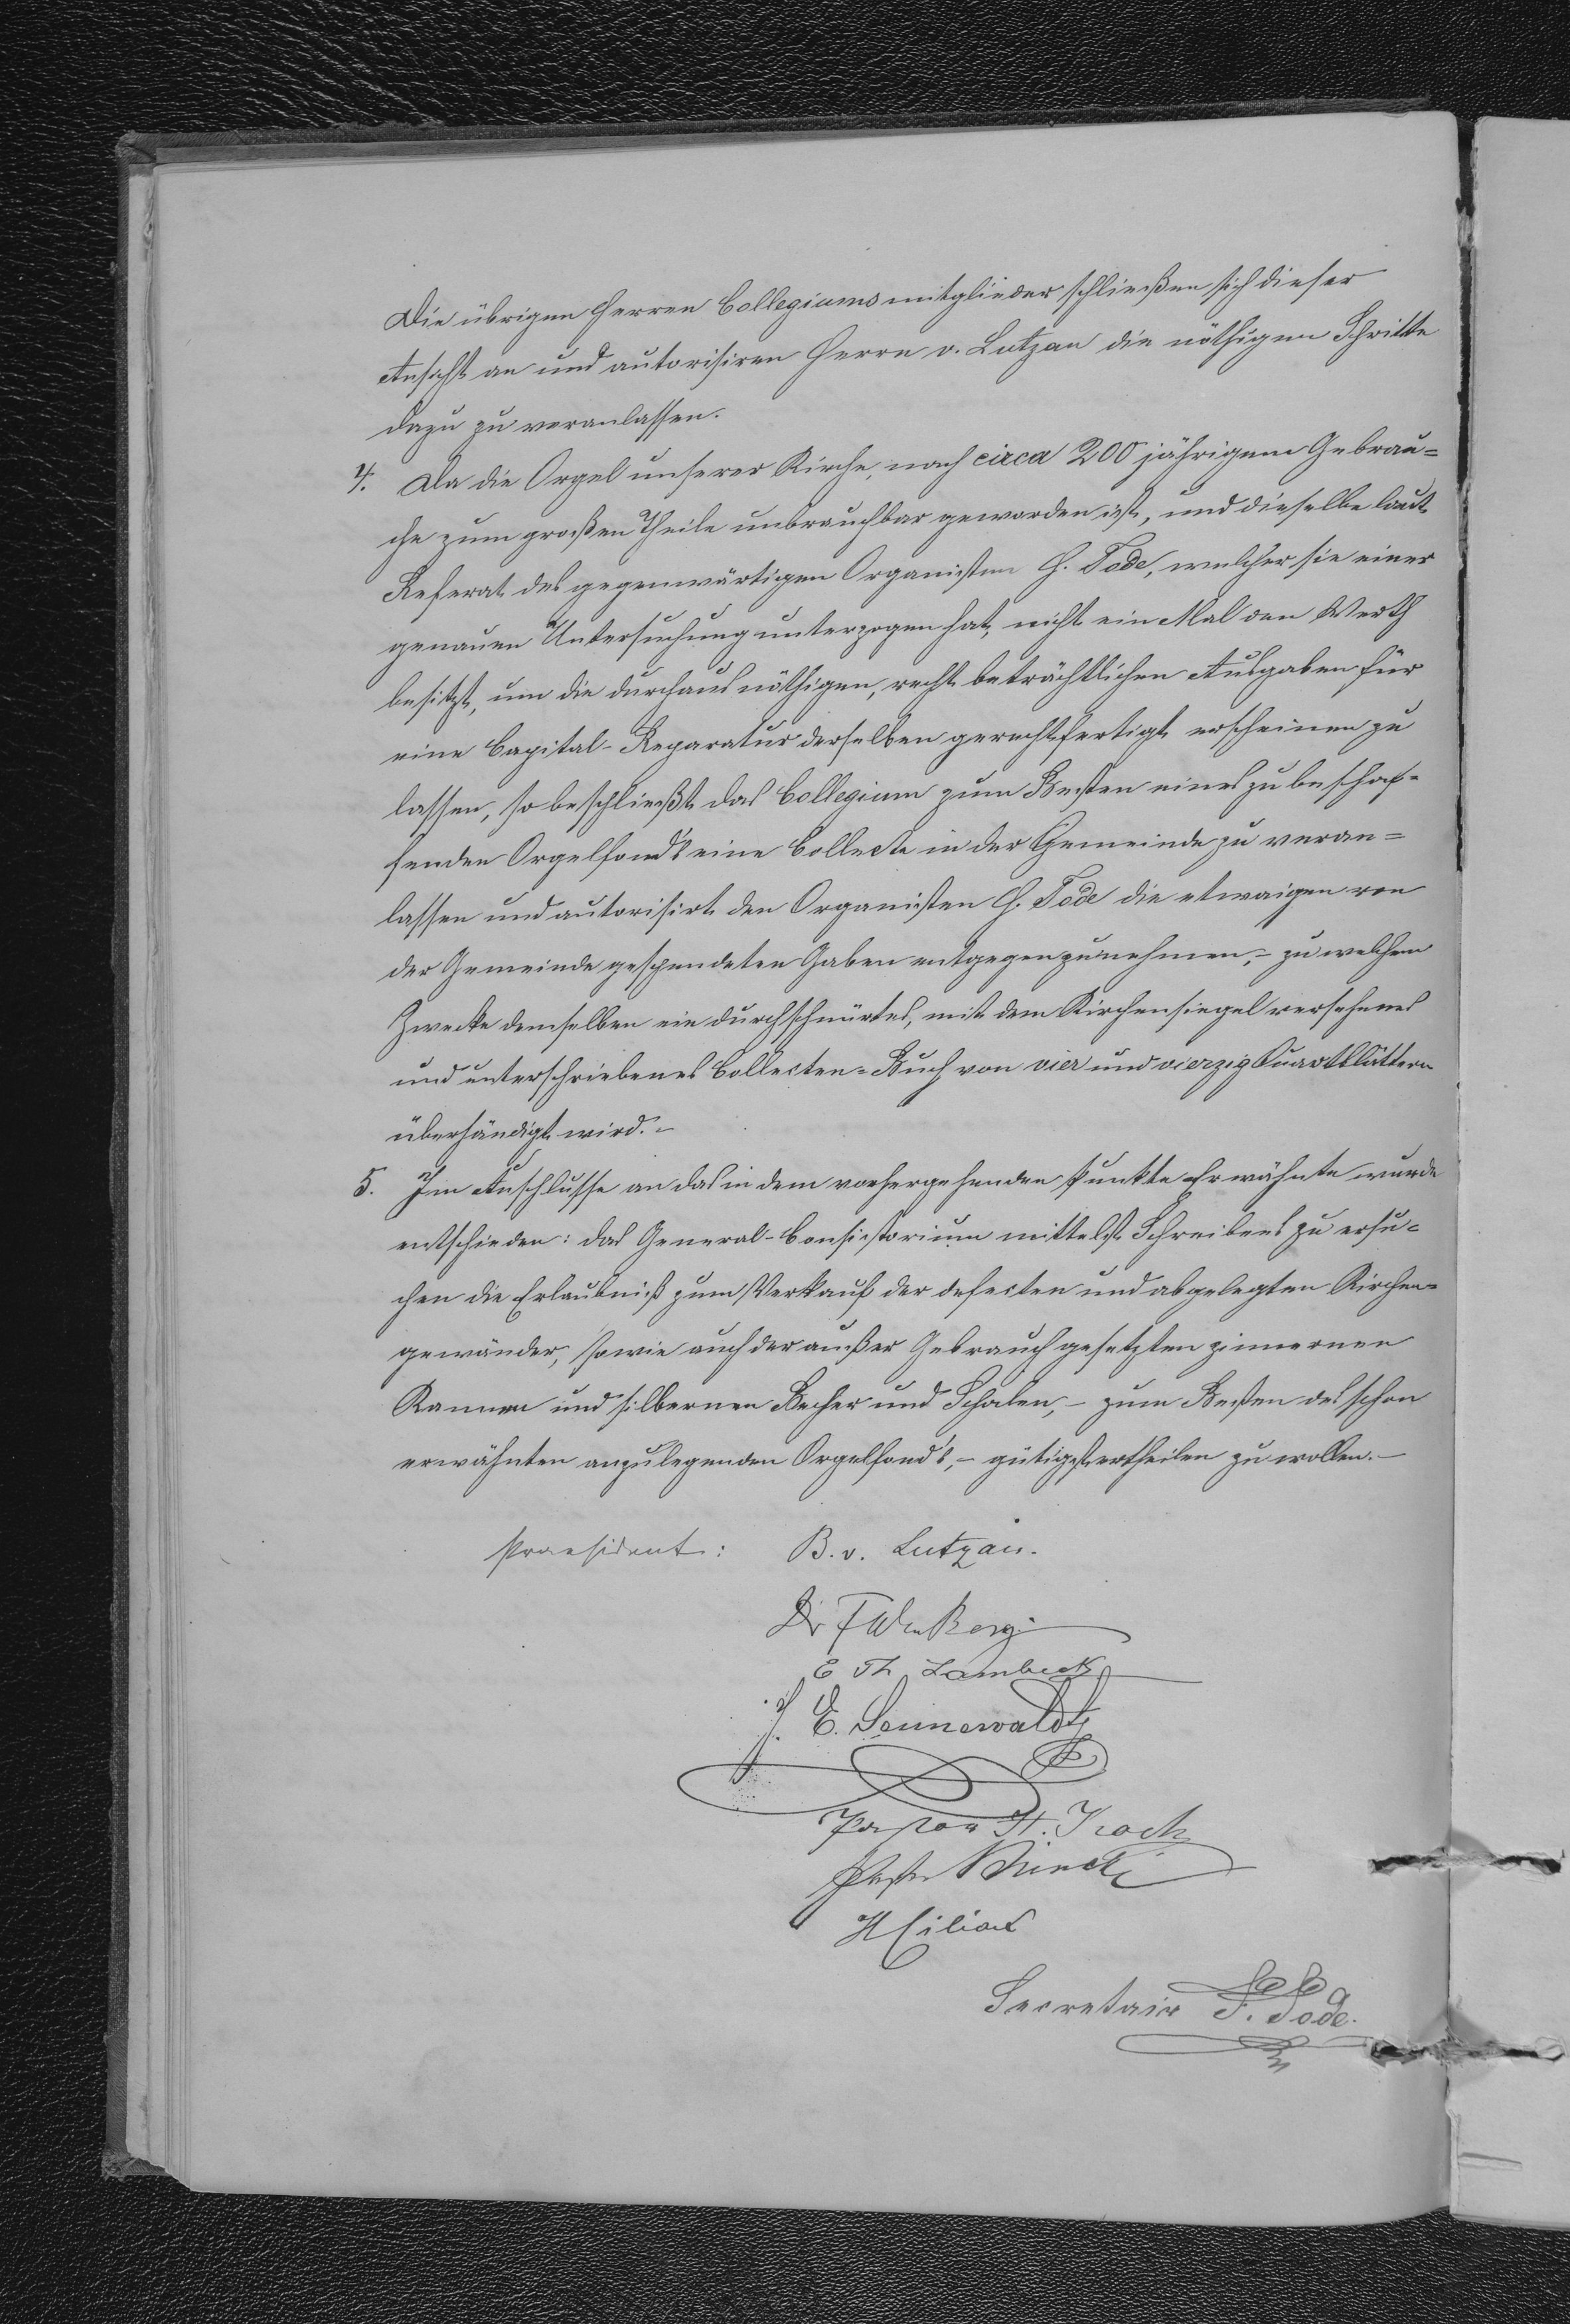 Die übrigen Herren Collegiumsmitglieder schließen sich dieser
Ansicht an und autorisiren Herrn v. Lutzau die nöthigen Schritte
dazu zu veranlassen.
4. Da die Orgel unserer Kirche, nach circa 200 jährigem Gebrau=
che zum großen Theile unbrauchbar geworden ist, und dieselbe laut
Referat des gegenwärtigen Organisten H. Tode, welcher sie einer
genauen Untersuchung unterzogen hat, nicht ein Mal den Werth
besitzt, um die durchaus nöthigen, recht beträchtlichen Ausgaben für
eine Capital-Reparatur derselben gerechtfertigt erscheinen zu
lassen, so beschließt das Collegium zum Besten eines zu beschaf=
fenden Orgelfond's eine Collecte in der Gemeinde zu veran=
lassen und autorisirt den Organisten H. Tode die etwaigen von
der Gemeinde gespendeten Gaben entgegenzunehmen, – zu welchem
Zwecke demselben ein durchschnürtes, mit dem Kirchensiegel versehenes
und unterschriebenes Collecten=Buch von vier und vierzig Quartblättern
überhändigt wird. –
5. Im Anschlusse an das in dem vorhergehenden Punkte Erwähnte wurde
entschieden: das General-Consistorium mittelst Schreibens zu ersu=
chen die Erlaubniß zum Verkauf der defecten und abgelegten Kirchen=
gewänder, sowie auch der außer Gebrauch gesetzten zinnernen
Kannen und silbernen Becher und Schalen, – zum Besten des schon
erwähnten anzulegenden Orgelfond's, – gütigst ertheilen zu wollen. –
Praesident: B. v. Lutzau.
Dr Berg
E Th Lambeck
J. E. Sennewaldt
Pastor H.
Pastor
Secretair F. Tode.